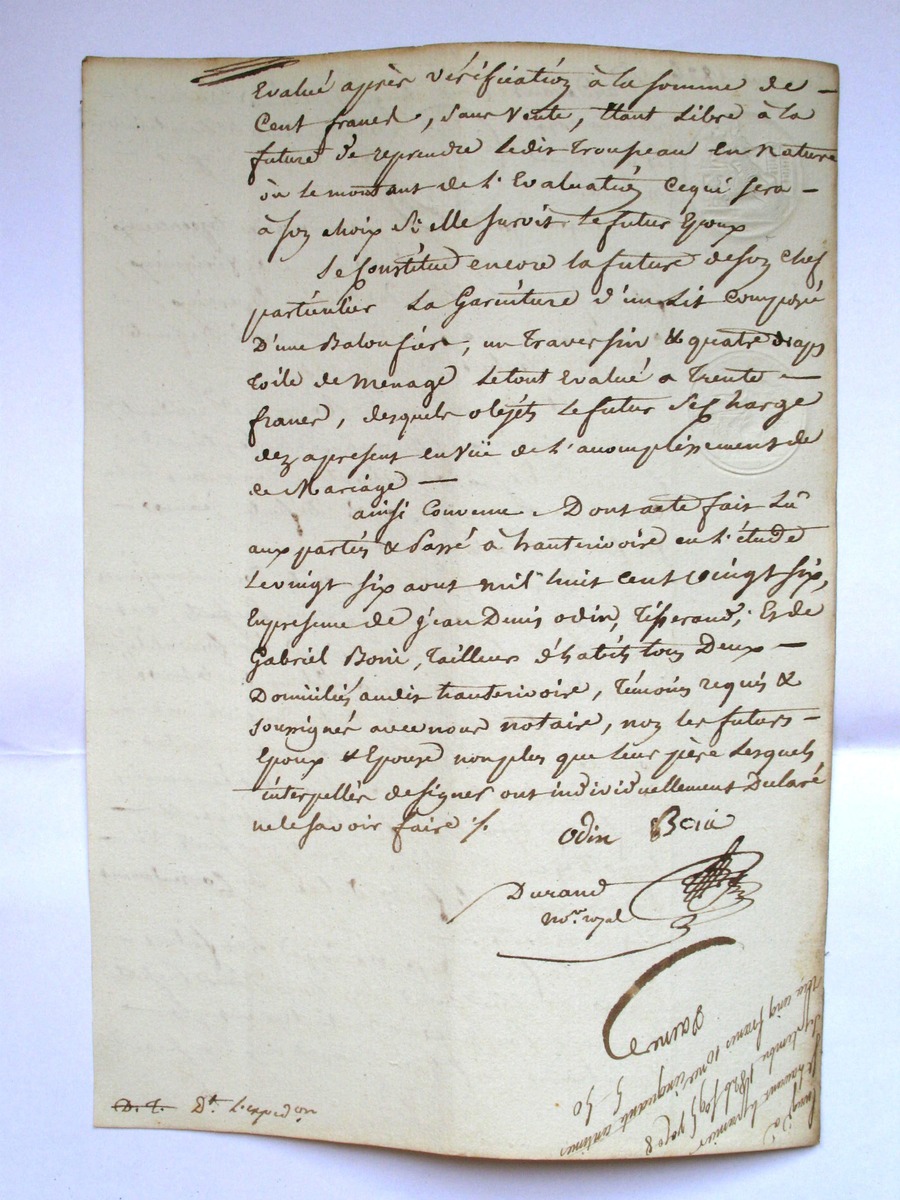 Evalué après vérification à la somme de —
Cent francs, sans vente, étant Libre à la
future de reprendre ledit Troupeau en Nature
ou le montant de l'Evaluation ce qui sera —
à son choix si elle survit le futur Epoux
Se Constitue encore la future de son chef
particulier La Garniture d'un Lit Composé
D'une Baloufière, un Traversin & quatre draps
Toile de Menage le tout Evalué a Trente —
francs, desquels objets le futur se charge
dez apresent en Vüe de l'accomplissement de
ce Mariage —
ainsi Convenu. Dont acte fait Lû
aux parties & Passé à hauterivoire en l'étude
Le vingt six aout mil huit cent vingt six,
En presence de Jean Denis odin, Tisserand, Et de
Gabriel Boni, Tailleur d'habits tous Deux —
Domiciliés audit hauterivoire, Témoins requis &
soussignés avec nous notaire, non les futurs —
Epoux & Epouse non plus que leur père Lesquels
interpellés de signer ont individuellement Declaré
ne le savoir faire ./.
Odin
Durand
No.re royal
D.t L'expedon
septembre 1826
cinq francs
cinquante centimes
5-50